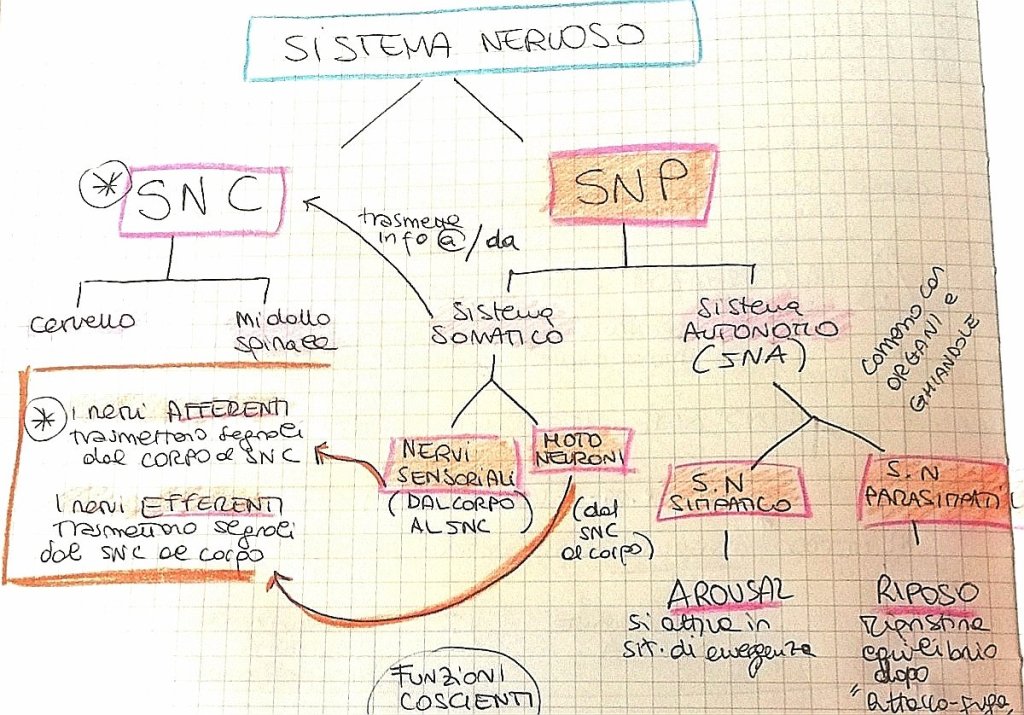 SISTEMA NERVOSO
* SNC
SNP
trasmette
info a/da
cervello
midollo
spinale
Sistema
SOMATICO
Sistema
AUTONOMO
(SNA)
ORGANI e
GHIANDOLE
* I nervi AFFERENTI
trasmettono segnali
dal CORPO al SNC
I nervi EFFERENTI
trasmettono segnali
dal SNC al corpo
NERVI
SENSORIALI
(DAL CORPO
AL SNC)
MOTO
NEURONI
(dal
SNC
al corpo)
S.N
SIMPATICO
S.N
PARASIMPATIC
AROUSAL
si attiva in
sit. di emergenza
RIPOSO
ripristina
equilibrio
dopo
"attacco-fuga
FUNZIONI
COSCIENTI